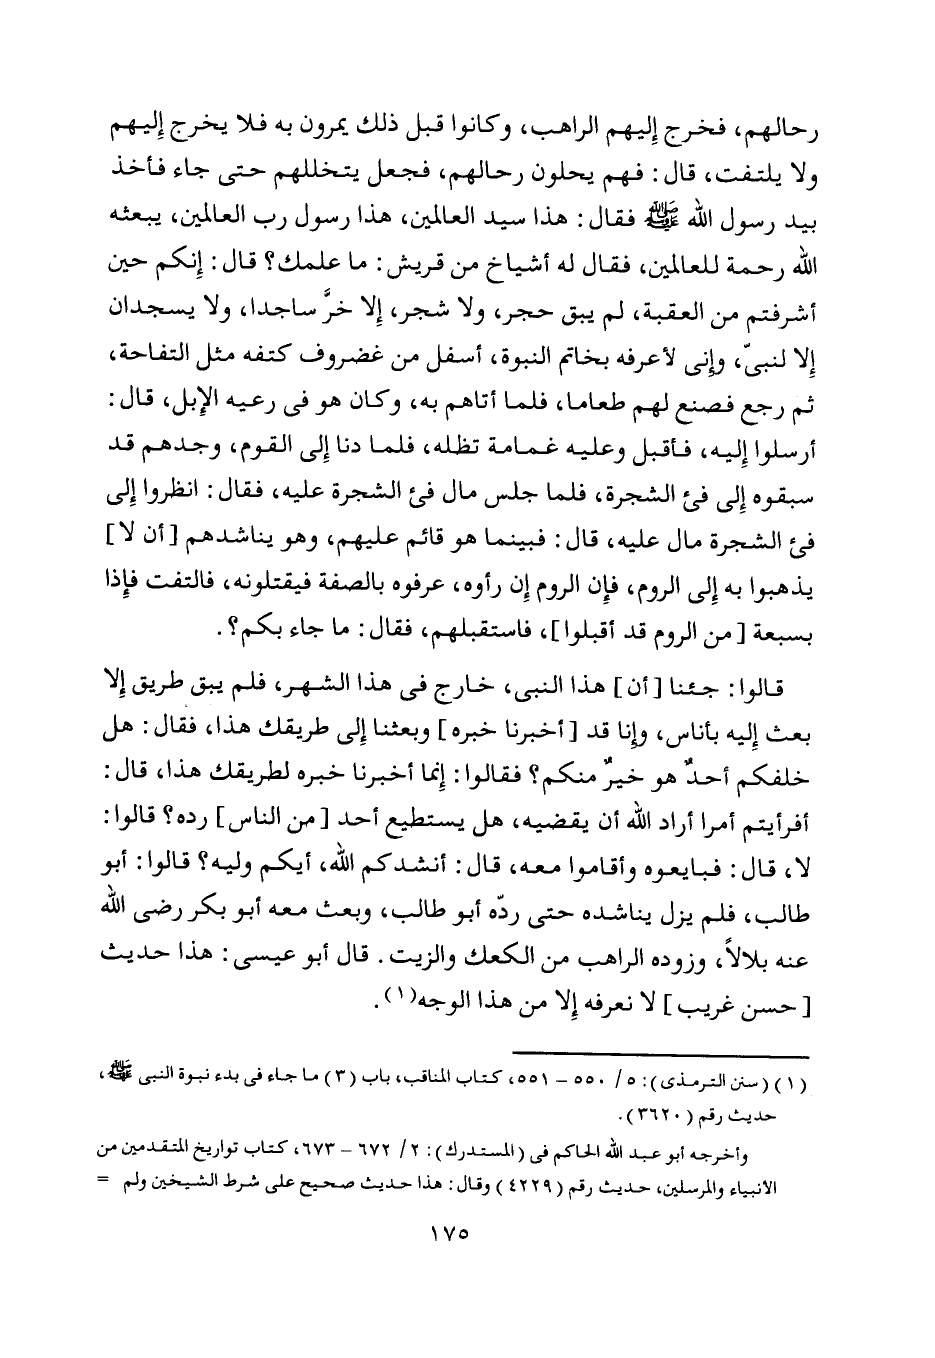 رحالهم، فخرج إليهم الراهب، وكانوا قبل ذلك يمرون به فلا يخرج إليهم
ولا يلتفت، قال: فهم يحلون رحالهم، فجعل يتخللهم حتى جاء فأخذ
بيد رسول الله ﷺ فقال: هذا سيد العالمين، هذا رسول رب العالمين، يبعثه
الله رحمة للعالمين، فقال له أشياخ من قريش: ما علمك؟ قال: إنكم حين
أشرفتم من العقبة، لم يبق حجر، ولا شجر، إلا خرَّ ساجدا، ولا يسجدان
إلا لنبىّ، وإنى لأعرفه بخاتم النبوة، أسفل من غضروف كتفه مثل التفاحة،
ثم رجع فصنع لهم طعاما، فلما أتاهم به، وكان هو فى رعيه الإبل، قال:
أرسلوا إليه، فأقبل وعليه غمامة تظله، فلما دنا إلى القوم، وجدهم قد
سبقوه إلى فئ الشجرة، فلما جلس مال فئ الشجرة عليه، فقال: انظروا إلى
فئ الشجرة مال عليه، قال: فبينما هو قائم عليهم، وهو يناشدهم [أن لا]
يذهبوا به إلى الروم، فإن الروم إن رأوه، عرفوه بالصفة فيقتلونه، فالتفت فإذا
بسبعة [من الروم قد أقبلوا]، فاستقبلهم، فقال: ما جاء بكم؟.
قالوا: جئنا [أن] هذا النبى، خارج فى هذا الشهر، فلم يبق طريق إلا
بعث إليه بأناس، وإنا قد [أخبرنا خبره] وبعثنا إلى طريقك هذا، فقال: هل
خلفكم أحدٌ هو خيرٌ منكم؟ فقالوا: إنما أخبرنا خبره لطريقك هذا، قال:
أفرأيتم أمرا أراد الله أن يقضيه، هل يستطيع أحد [من الناس] رده؟ قالوا:
لا، قال: فبايعوه وأقاموا معه، قال: أنشدكم الله، أيكم وليه؟ قالوا: أبو
طالب، فلم يزل يناشده حتى ردّه أبو طالب، وبعث معه أبو بكر رضى الله
عنه بلالاً، وزوده الراهب من الكعك والزيت. قال أبو عيسى: هذا حديث
[حسن غريب] لا نعرفه إلا من هذا الوجه(١).
(١) (سنن الترمذى): ٥/ ٥٥٠ – ٥٥١، كتاب المناقب، باب (٣) ما جاء فى بدء نبوة النبى ﷺ،
حديث رقم (٣٦٢٠).
وأخرجه أبو عبد الله الحاكم فى (المستدرك): ٢/ ٦٧٢ – ٦٧٣، كتاب تواريخ المتقدمين من
الانبياء والمرسلين، حديث رقم (٤٢٢٩) وقال: هذا حديث صحيح على شرط الشيخين ولم =
١٧٥